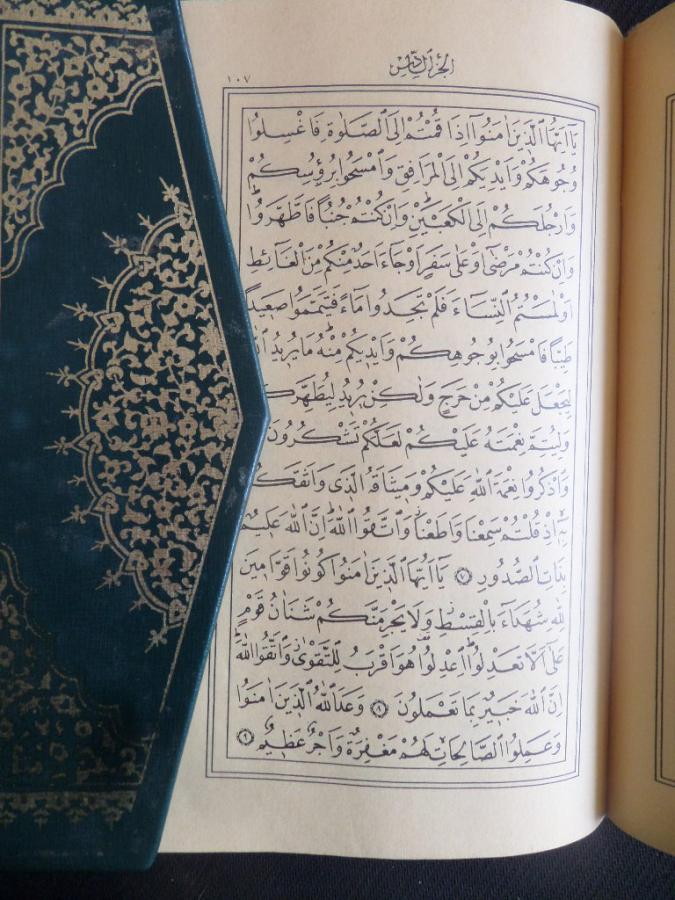 الجزء السادس
١٠٧
يَٓا اَيُّهَا الَّذ۪ينَ اٰمَنُٓوا اِذَا قُمْتُمْ اِلَى الصَّلٰوةِ فَاغْسِلُوا
وُجُوهَكُمْ وَاَيْدِيَكُمْ اِلَى الْمَرَافِقِ وَامْسَحُوا بِرُؤُ۫سِكُمْ
وَاَرْجُلَكُمْ اِلَى الْكَعْبَيْنِۜ وَاِنْ كُنْتُمْ جُنُبًا فَاطَّهَّرُواۜ
وَاِنْ كُنْتُمْ مَرْضٰٓى اَوْ عَلٰى سَفَرٍ اَوْ جَٓاءَ اَحَدٌ مِنْكُمْ مِنَ الْغَٓائِطِ
اَوْ لٰمَسْتُمُ النِّسَٓاءَ فَلَمْ تَجِدُوا مَٓاءً فَتَيَمَّمُوا صَع۪يدًا
طَيِّبًا فَامْسَحُوا بِوُجُوهِكُمْ وَاَيْد۪يكُمْ مِنْهُۜ مَا يُر۪يدُ
لِيَجْعَلَ عَلَيْكُمْ مِنْ حَرَجٍ وَلٰكِنْ يُر۪يدُ لِيُطَهِّرَكُ
وَلِيُتِمَّ نِعْمَتَهُ عَلَيْكُمْ لَعَلَّكُمْ تَشْكُرُونَ
وَاذْكُرُوا نِعْمَةَ اللّٰهِ عَلَيْكُمْ وَم۪يثَاقَهُ الَّذ۪ي وَاثَقَكُ
بِه۪ٓۙ اِذْ قُلْتُمْ سَمِعْنَا وَاَطَعْنَاۘ وَاتَّقُوا اللّٰهَۜ اِنَّ اللّٰهَ عَل۪يمٌ
بِذَاتِ الصُّدُورِ ﴿٧﴾ يَٓا اَيُّهَا الَّذ۪ينَ اٰمَنُوا كُونُوا قَوَّام۪ينَ
لِلّٰهِ شُهَدَٓاءَ بِالْقِسْطِۘ وَلَا يَجْرِمَنَّكُمْ شَنَاٰنُ قَوْمٍ
عَلٰٓى اَلَّا تَعْدِلُواۜ اِعْدِلُوا۠ هُوَ اَقْرَبُ لِلتَّقْوٰىۘ وَاتَّقُوا اللّٰهَۜ
اِنَّ اللّٰهَ خَب۪يرٌ بِمَا تَعْمَلُونَ ﴿٨﴾ وَعَدَ اللّٰهُ الَّذ۪ينَ اٰمَنُوا
وَعَمِلُوا الصَّالِحَاتِۙ لَهُمْ مَغْفِرَةٌ وَاَجْرٌ عَظ۪يمٌ ﴿٩﴾